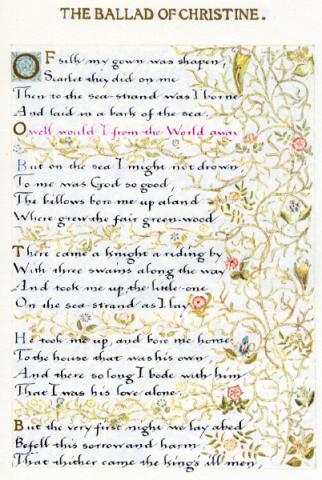 THE BALLAD OF CHRISTINE.
OF silk my gown was shapen,
Scarlet they did on me
Then to the sea-strand was I borne
And laid in a bark of the sea.
O well would I from the World away
But on the sea I might not drown
To me was God so good,
The billows bore me up aland
Where grew the fair green-wood
There came a knight a riding by
With three swains along the way
And took me up the little-one
On the sea-strand as I lay
He took me up, and bore me home
To the house that was his own,
And there so long I bode with him
That I was his love alone.
But the very first night we lay abed
Befell this sorrow and harm
That thither came the king's ill men,